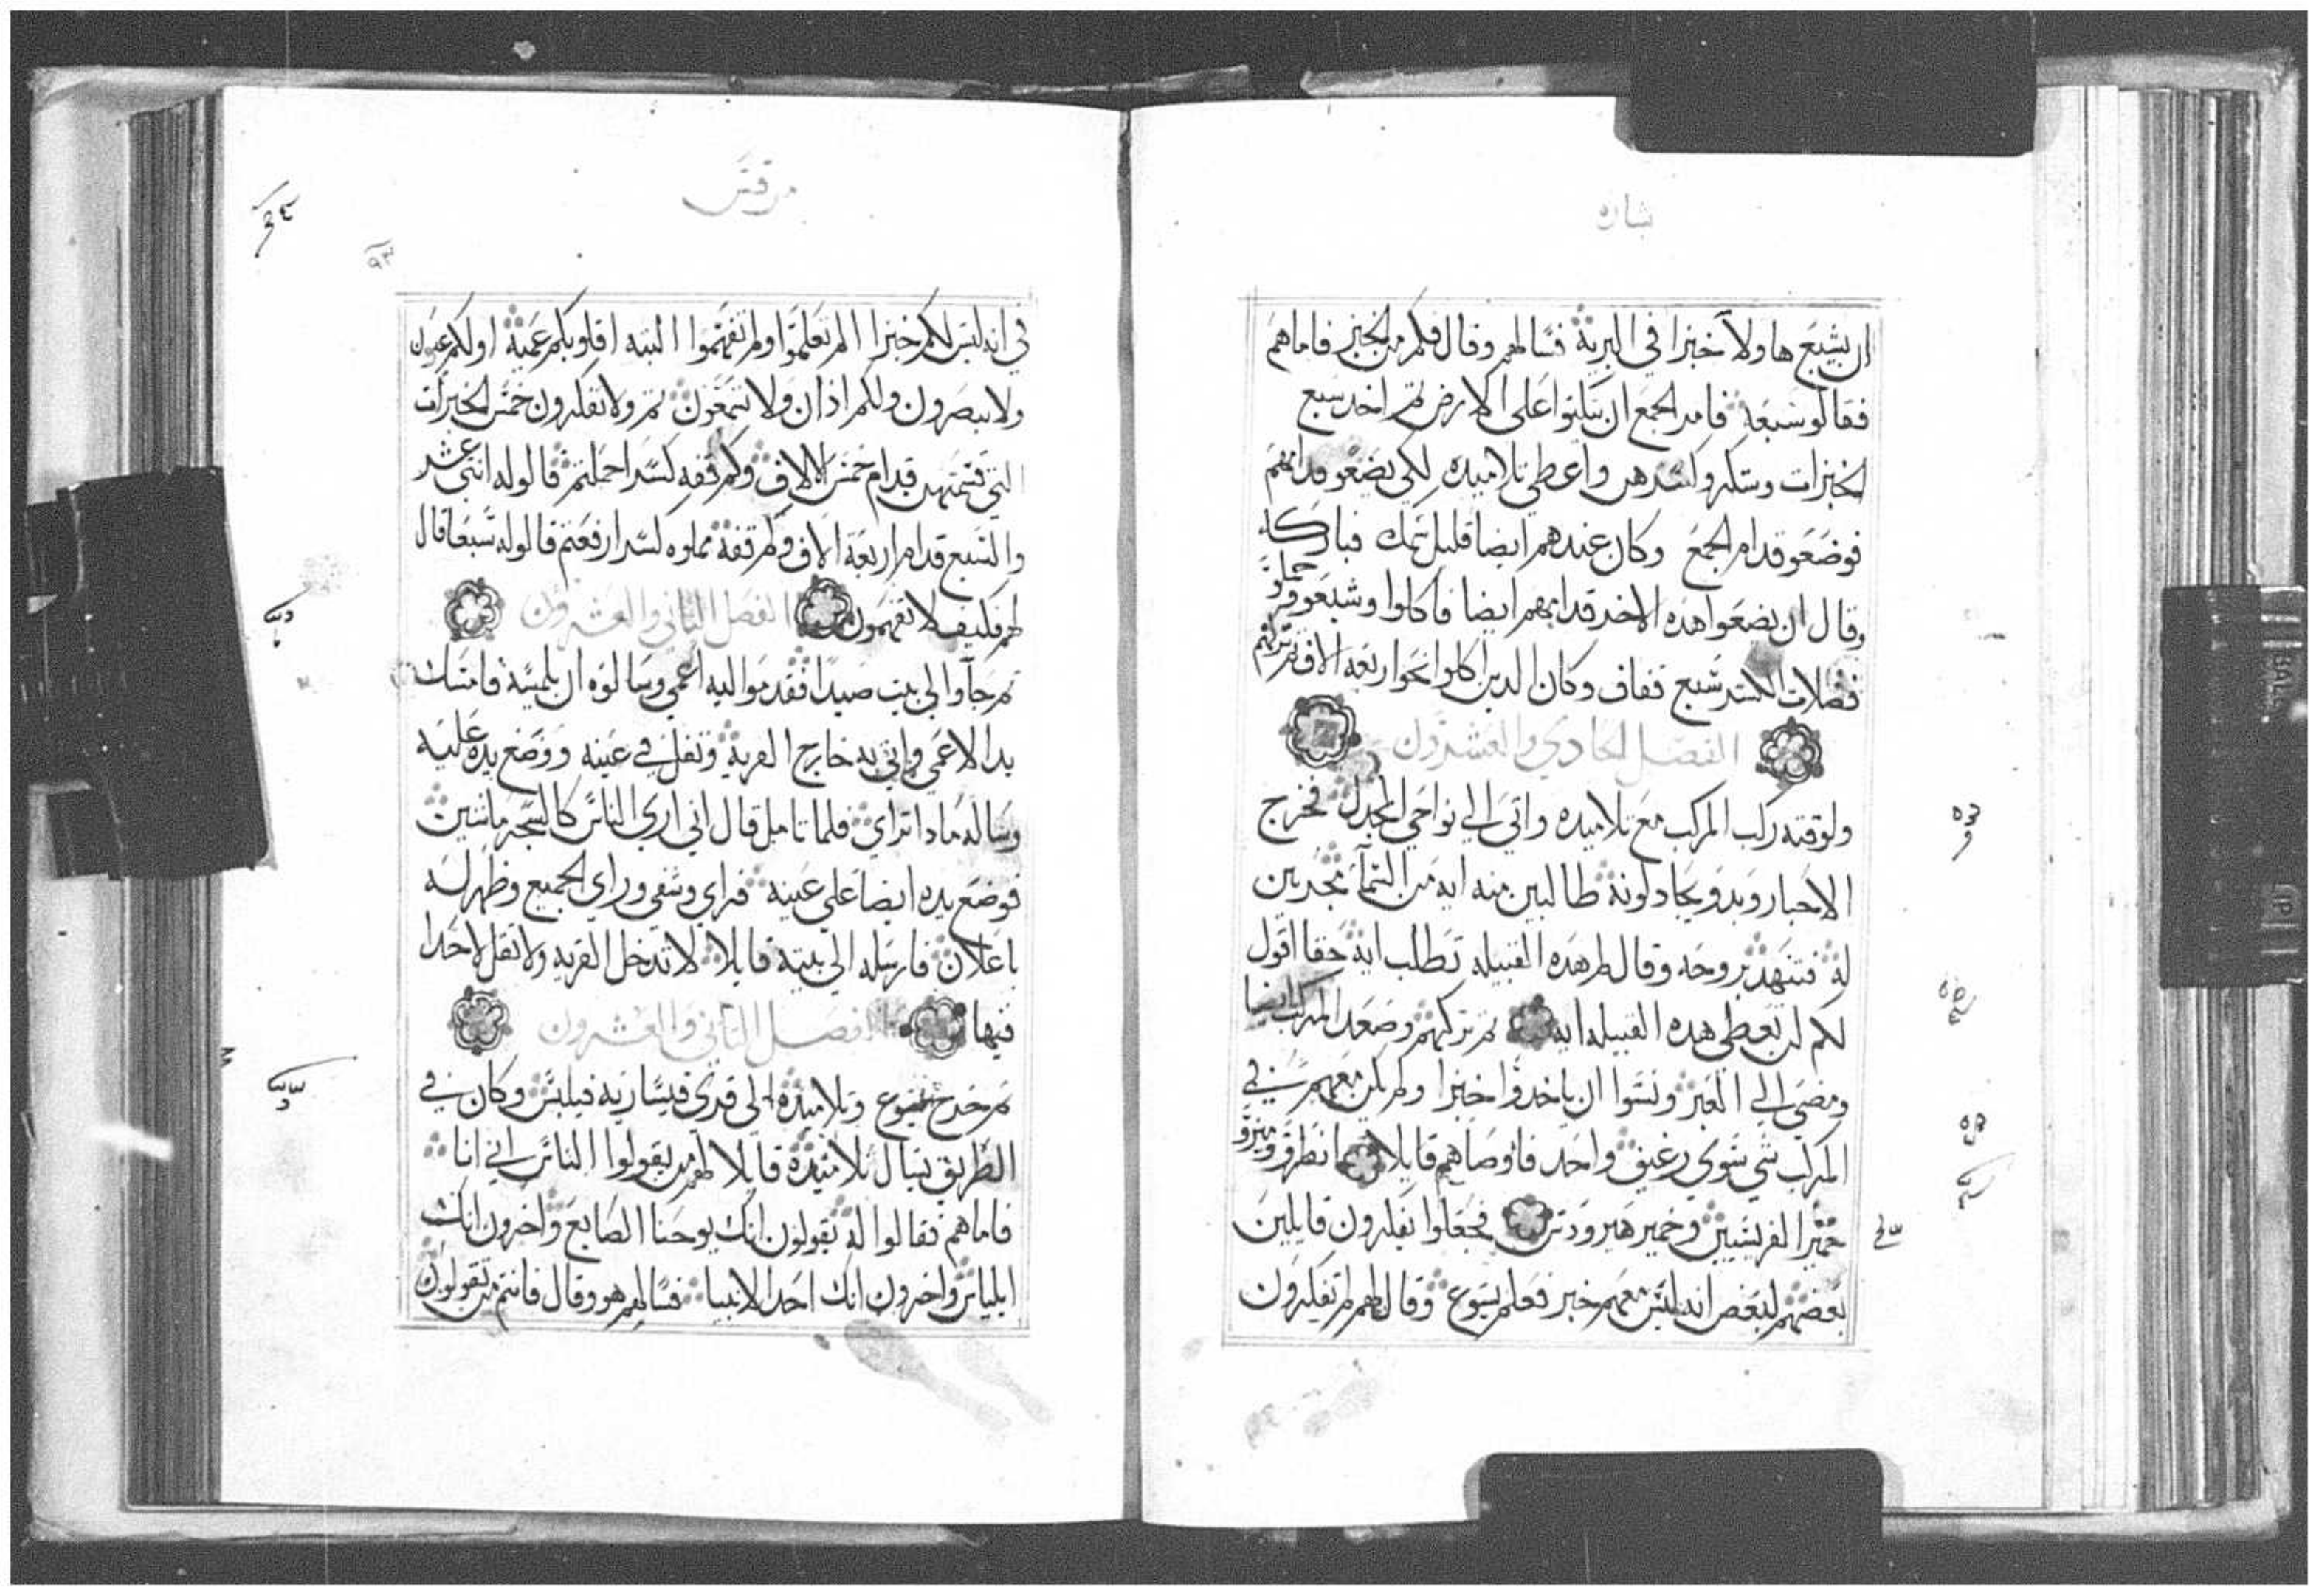 بشاره
ان يشبع هاولآ خبزا في البرية فسالهم وقال فكم من الخبز فاماهم
فقالو سبعة فامر الجمع ان يتكئوا على الارض ثم اخد سبع
الخبزات وشكر وكسرهن واعطى تلاميده لكي يضعو قدامهم
فوضعو قدام الجمع وكان عندهم ايضا قليل سمك فباركه
وقال ان يضعوا هده الاخر قدامهم ايضا فاكلوا وشبعو وحملو
فضلات الكسر سبع قفاف وكان الدين اكلوا نحوا ربعه الاف ثم تركهم
الفصل الحادي والعشرون
ولوقته ركب المركب مع تلاميده واتى الى نواحي المجدل فخرج
الاحبار وبدو يجادلونه طالبين منه ايه من السمآ مجربين
له فتنهد بروحه وقال لم هده القبيله تطلب ايه حقا اقول
لكم لن تعطى هده القبيله ايه ثم تركهم وصعد المركب ايضا
ومضى الى العبر ونسوا ان ياخدوا خبزا ولم يكن معهم في
المركب شي سوى رغيف واحد فاوصاهم قايلا انظرو وميزو
خمير الفريسيين وخمير هيرودس فجعلوا يفكرون قايلين
بعضهم لبعض انه ليس معهم خبز فعلم يسوع وقال لهم لم تفكرون
مرقس
في انه ليس لكم خبزا الم تعلموا ولم تفهموا البته اقلوبكم عمية اولكم عيون
ولا تبصرون ولكم ادان ولا تسمعون ثم ولا تفكرون خمس الخبزات
التي قسمتهن قدام خمس الالاف وكم قفه كسرا حملتم قالو له اثنى عشر
والسبع قدام اربعة الاف وكم قفة مملوه كسرا رفعتم قالو له سبعا قال
لهم فكيف لا تفهمون الفصل الثاني والعشرون
ثم جآو الى بيت صيدا فقدموا اليه اعمى وسالوه ان يلمسه فامسك
يد الاعمى واتى به خارج القرية وتفل في عينه ووضع يده عليه
وساله مادا تراي فلما تامل قال اني ارى الناس كالشجر ماشيين
فوضع يده ايضا على عينه فراي وشفى وراي الجميع وظهر له
باعلان فارسله الى بيته قايلا لا تدخل القريه ولا تقل لاحدا
فيها الفصل الثاني والعشرون
ثم خرج يسوع وتلاميده الى قرى قيسارية فيلبس وكان في
الطريق يسال تلاميده قايلا لهم من يقولوا الناس اني انا
فاماهم فقالوا له يقولون انك يوحنا الصابغ واخرون انك
ايلياس واخرون انك احد الانبيا فسالهم هو وقال فانتم من تقولون